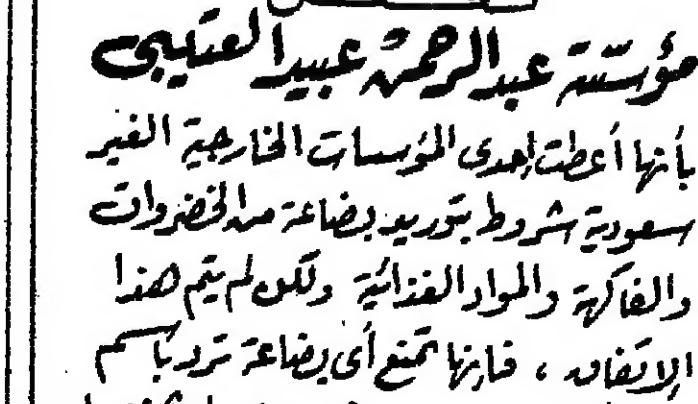 مؤسسة عبدالرحمن عبيد العتيبي
بأنها أعطت إحدى المؤسسات الخارجية الغير
سعودية شروط بتوريد بضاعة من الخضروات
والفاكهة والمواد الغذائية ولكن لم يتم هذا
الاتفاق ، فإنها تمنع أى بضاعة ترد باسم